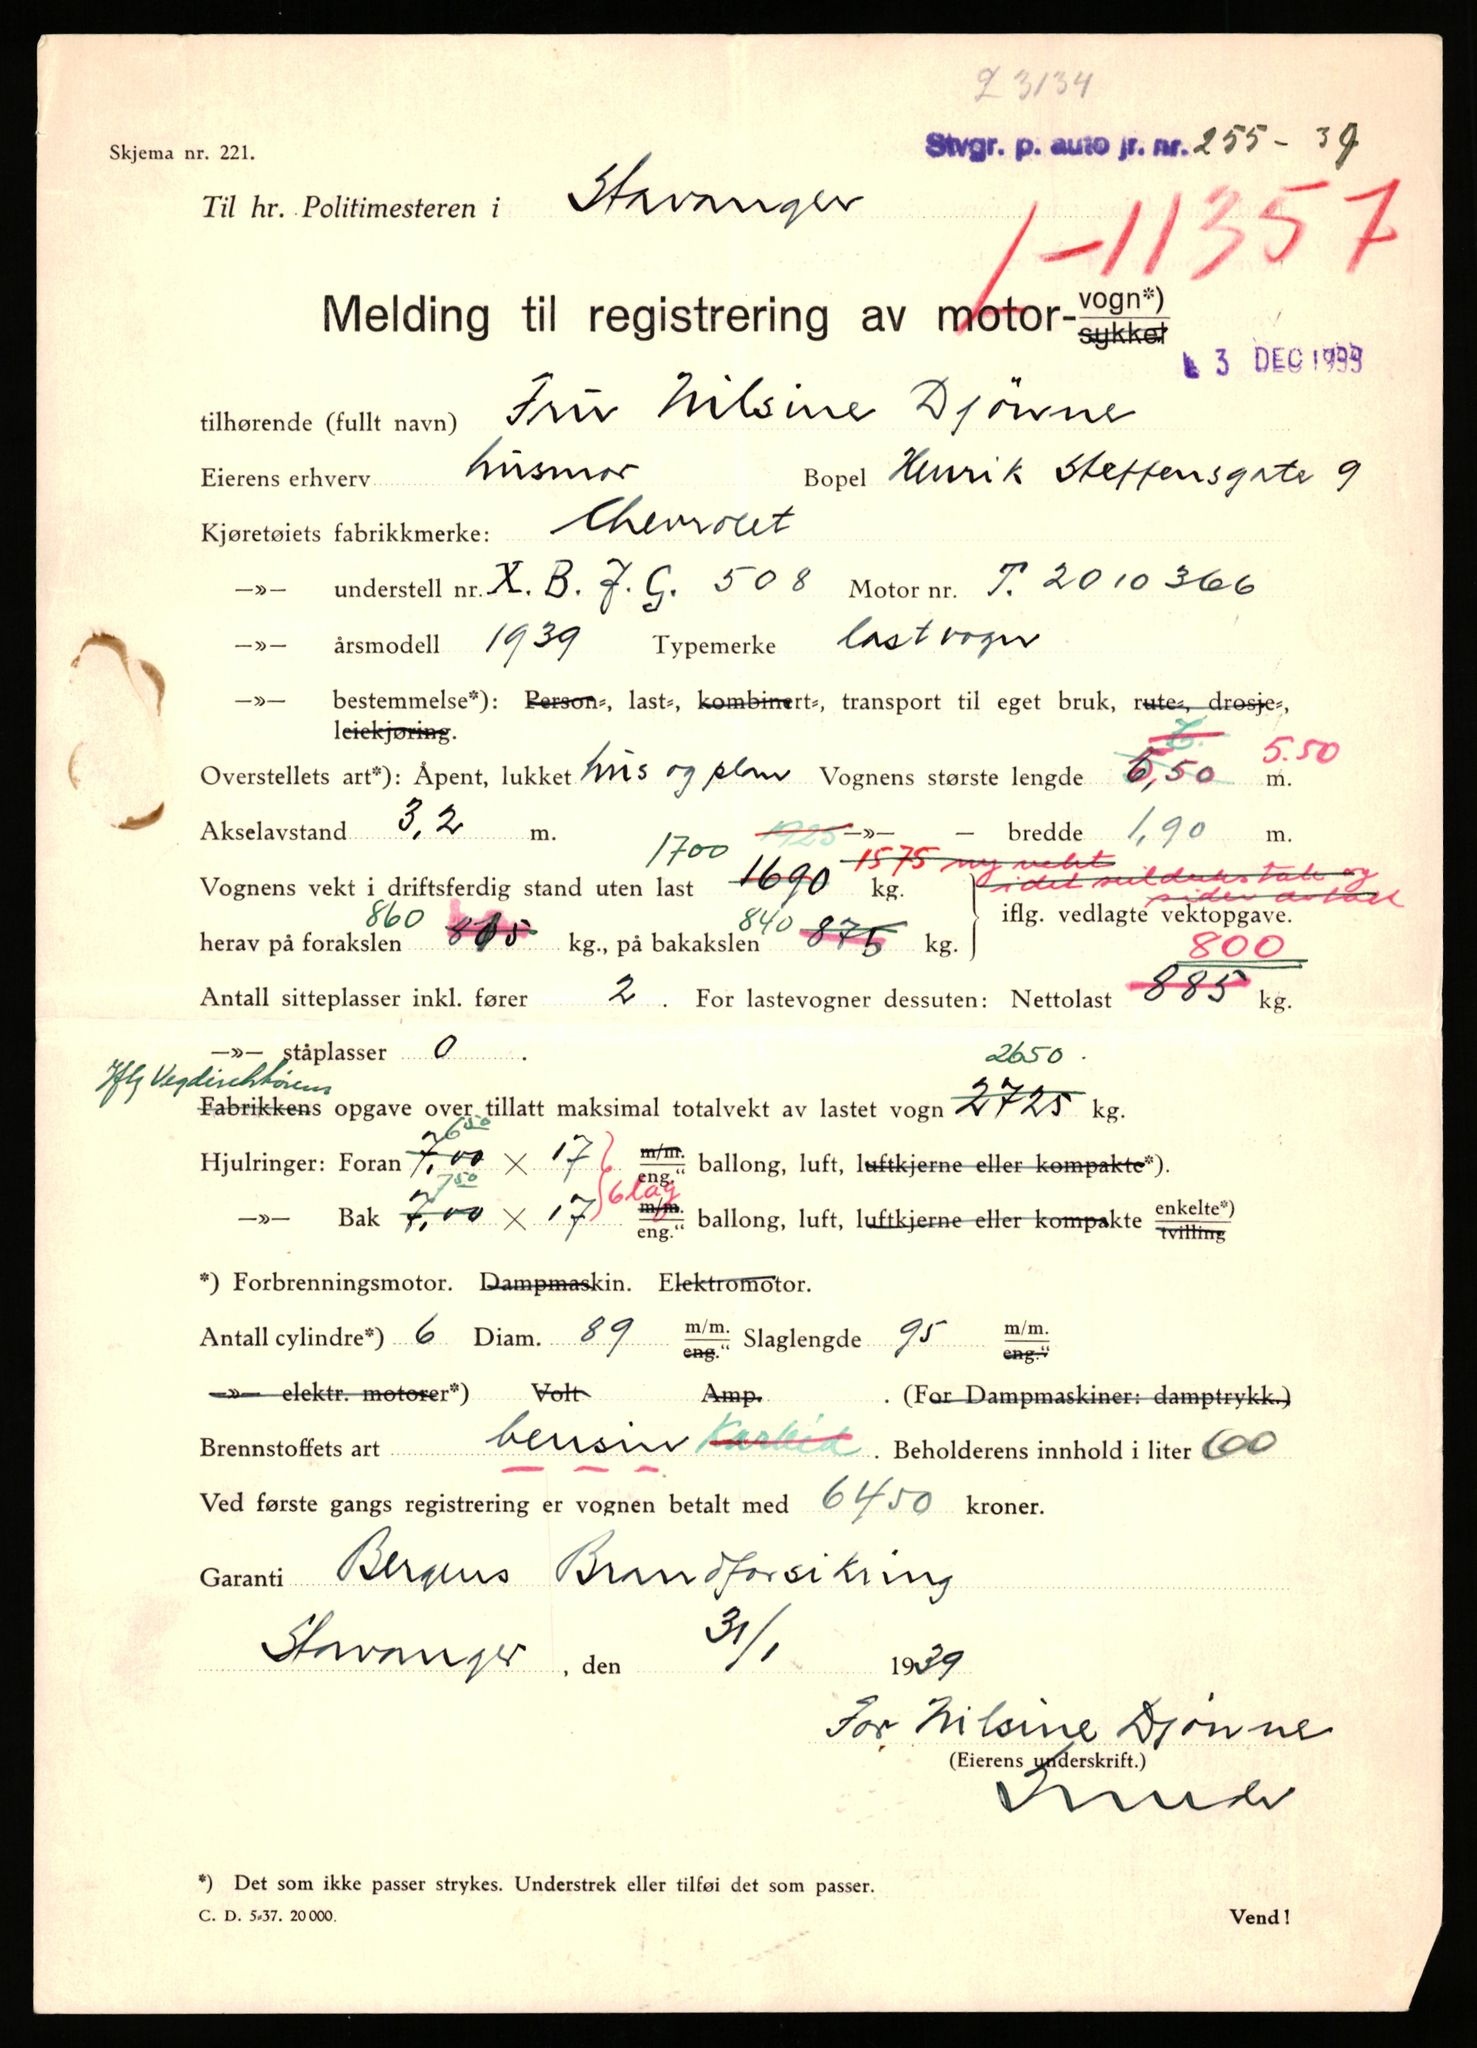 2 3134
Skjema nr. 221.
Stvgr. p. auto jr. nr. 255 - 39
Til hr. Politimesteren i Stavanger
1-11357
Melding til registrering av motor-vogn*)
sykkel
3 DEC 1939
tilhørende (fullt navn) Fru Nilsine Djönne
Eierens erhverv husmor Bopel Henrik Steffensgate 9
Kjøretøiets fabrikkmerke: Chevrolet
—»— understell nr. X. B. J. G. 508 Motor nr. T. 2010366
—»— årsmodell 1939 Typemerke lastvogn
—»— bestemmelse*): Person-, last-, kombinert-, transport til eget bruk, rute-, drosje-,
leiekjøring.
5.50
Overstellets art*): Åpent, lukket hus og plan Vognens største lengde 6,50 m.
Akselavstand 3,2 m. —»— — bredde 1,90 m.
1700 1925 1575 ny vekt
Vognens vekt i driftsferdig stand uten last 1690 kg.
iflg. vedlagte vektopgave.
860 840 800
herav på forakslen 815 kg., på bakakslen 875 kg.
Antall sitteplasser inkl. fører 2. For lastevogner dessuten: Nettolast 885 kg.
—»— ståplasser 0.
2650.
Iflg Vegdirektørens
Fabrikkens opgave over tillatt maksimal totalvekt av lastet vogn 2725 kg.
6 50
Hjulringer: Foran 7,00 × 17 m/m. eng.“ ballong, luft, luftkjerne eller kompakte*).
7 50 6 lag
—»— Bak 7,00 × 17 m/m. eng.“ ballong, luft, luftkjerne eller kompakte enkelte*) tvilling
*) Forbrenningsmotor. Dampmaskin. Elektromotor.
Antall cylindre*) 6 Diam. 89 m/m. eng.“ Slaglengde 95 m/m. eng.“
—»— elektr. motorer*) Volt Amp. . (For Dampmaskiner: damptrykk.)
Brennstoffets art bensin Karbid. Beholderens innhold i liter 60
Ved første gangs registrering er vognen betalt med 6450 kroner.
Garanti Bergens Brandforsikring
Stavanger, den 31/1 1939
For Nilsine Djönne
(Eierens underskrift.)
*) Det som ikke passer strykes. Understrek eller tilføi det som passer.
C. D. 5-37. 20 000.
Vend!